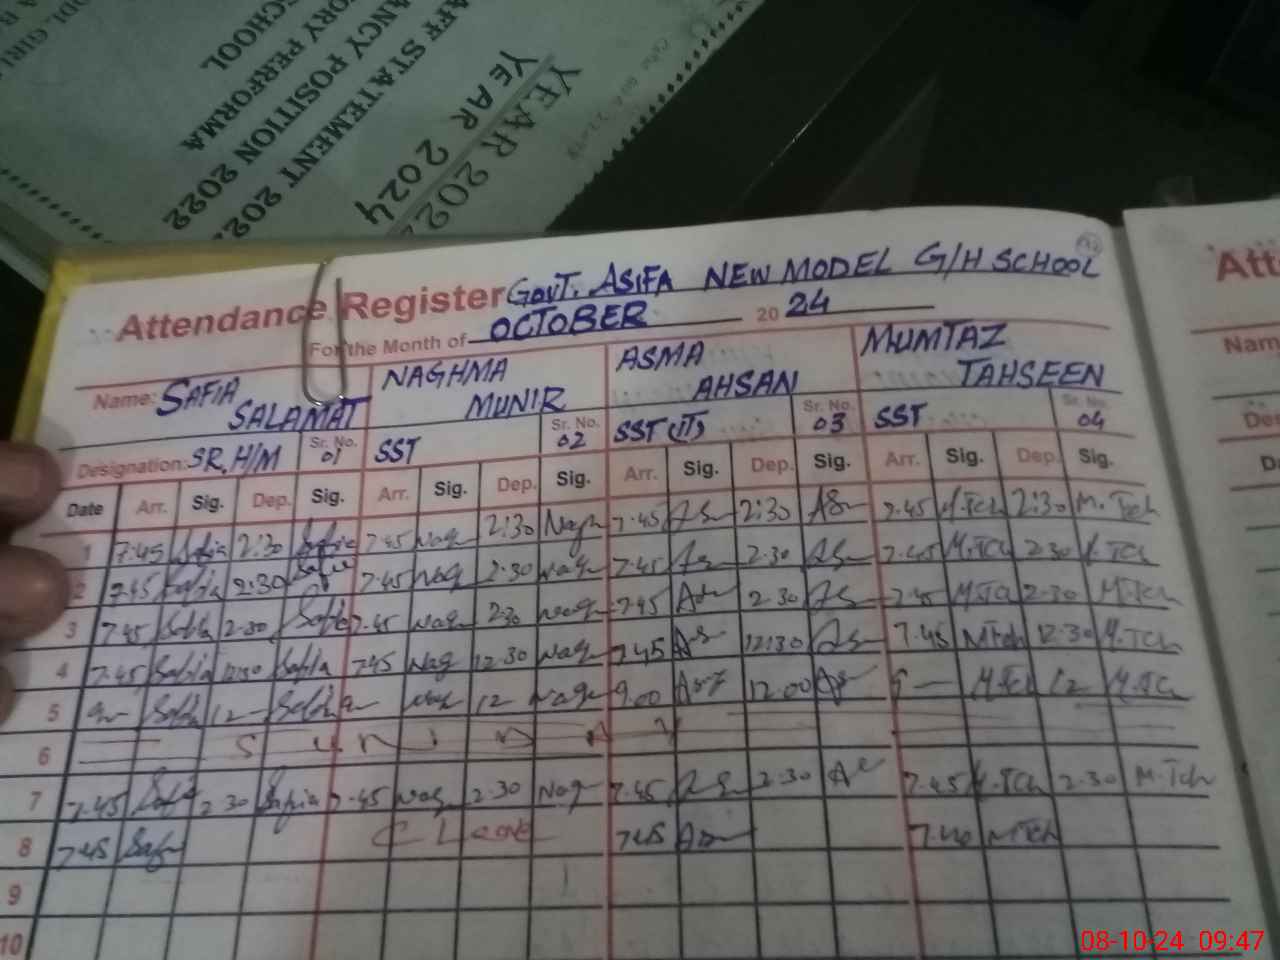 MODEL GIRL
SCHOOL
ORY PERFORMA
ANCY POSITION 2022
AFF STATEMENT 202
YEAR 2024
YEAR 202
Attendance Register GOVT. ASIFA NEW MODEL G/H SCHOOL
For the Month of OCTOBER 20 24
Name: SAFIA SALAMAT NAGHMA MUNIR ASMA AHSAN MUMTAZ TAHSEEN
Designation: SR, H/M Sr. No. 01 SST Sr. No. 02 SST (IT) Sr. No. 03 SST Sr. No. 04
Date Arr. Sig. Dep. Sig. Arr. Sig. Dep. Sig. Arr. Sig. Dep. Sig. Arr. Sig. Dep. Sig.
1 7:45 Safia 2:30 Safia 7:45 Nag 2:30 Nagh 7:45 As 2:30 AS 7:45 M.TCh 2:30 M.Tch
2 7:45 Safia 2:30 Safia 7:45 Nag 2:30 Nag 7:45 As 2:30 As 7:45 M.TCh 2:30 M.TCh
3 7:45 Safia 2:30 Safia 7:45 Nag 2:30 Nag 7:45 2:30 As 7:45 M.TCh 2:30 M.TCh
4 7:45 Safia 12:30 Safia 7:45 Nag 12:30 Nag 7:45 As 12:30 As 7:45 MTch 12:30 M.TCh
5 9 Safia 12 Safia 9 Nag 12 Nag 9.00 12.00 M.TCh 12 M.TCh
6 S U N D A Y
7 7:45 Safia 2:30 Safia 7:45 Nag 2:30 Nag 7:45 As 2:30 7:45 M.TCh 2:30 M.Tch
8 7:45 Safia C Leave 7:45 7:40 MTch
9
10
Att
Nam
Des
D
08-10-24 09:47